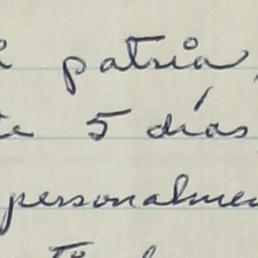 patria,
5 días
personalmen